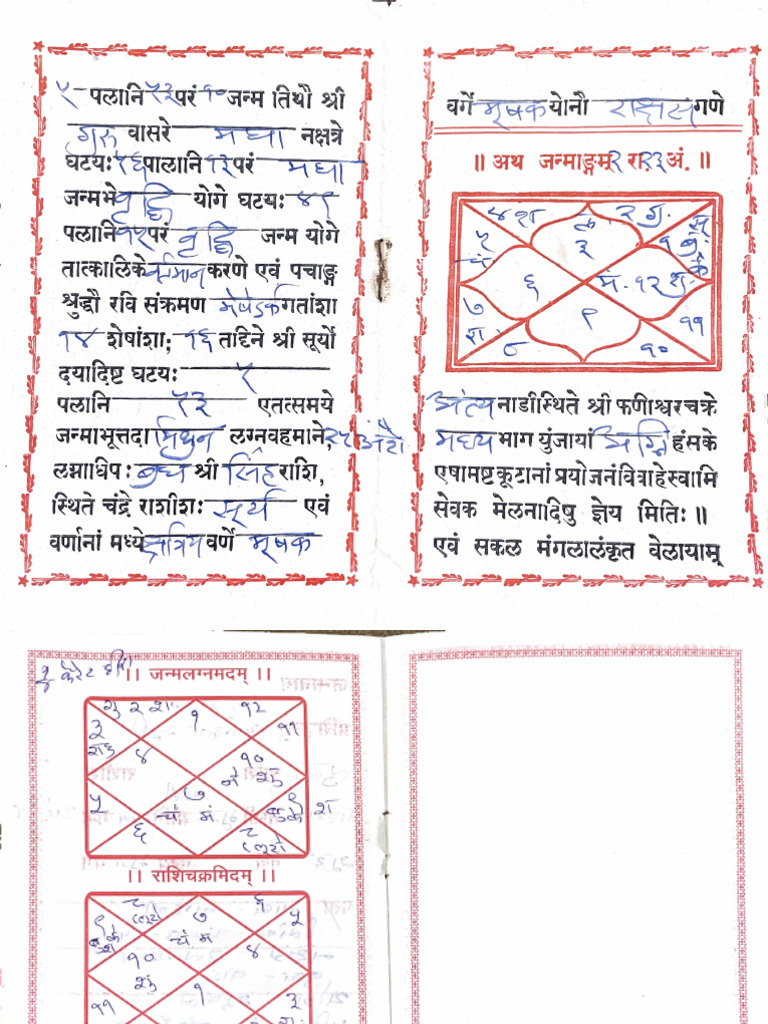 ५ पलानि ५३ परं १० जन्म तिथौ श्री
गुरु वासरे मघा नक्षत्रे
घटयः १६ पालानि १३ परं मघा
जन्मभे वृद्धि योगे घटयः ४९
पलानि १५ परं वृद्धि जन्म योगे
तात्कालिके वर्तमान करणे एवं पचाङ्ग
श्रुद्धौ रवि संक्रमण मेषेऽर्क गतांशा
१४ शेषांशा; १६ तद्दिने श्री सूर्यो
दयादिष्ट घटयः ५
पलानि ५३ एतत्समये
जन्माभूत्तदा मिथुन लग्नवहमाने,
लग्नाधिपः बुध श्री सिंह राशि,
स्थिते चंद्रे राशीशः सूर्य एवं
वर्णानां मध्ये क्षत्रिय वर्णे मूषक
वर्गे मूषक योनौ राक्षस गणे
॥ अथ जन्माङ्गम् २ रा २३ अं. ॥
४ रा के ३ २ गु. सू
५ चं १ बु. के
६ मं. १२ शु.
७ श ९ ११
८ १०
अंत्य नाडीस्थिते श्री फणीश्वरचक्रे
मध्य भाग युंजायां अग्नि हंसके
एषामष्टकूटानां प्रयोजनंविवाहेस्वामि
सेवक मेलनादिषु ज्ञेय मितिः ॥
एवं सकल मंगलालंकृत वेलायाम्
।। जन्मलग्नमदम् ।।
गु २ १ १२
३ राहु ४ ११
१० शु
५ ७ ९
चं मं
६ ८
।। राशिचक्रमिदम् ।।
८ ७ ६ ५
९ चं मं
१० ४
शु
११ १ ३